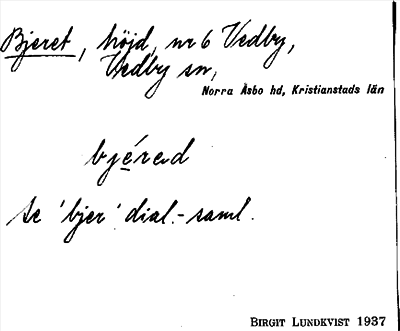 Bjeret, höjd, nr 6 Vedby,
Vedby sn,
Norra Åsbo hd, Kristianstads län
bjérad
se 'bjer' dial.-saml.
BIRGIT LUNDKVIST 1937